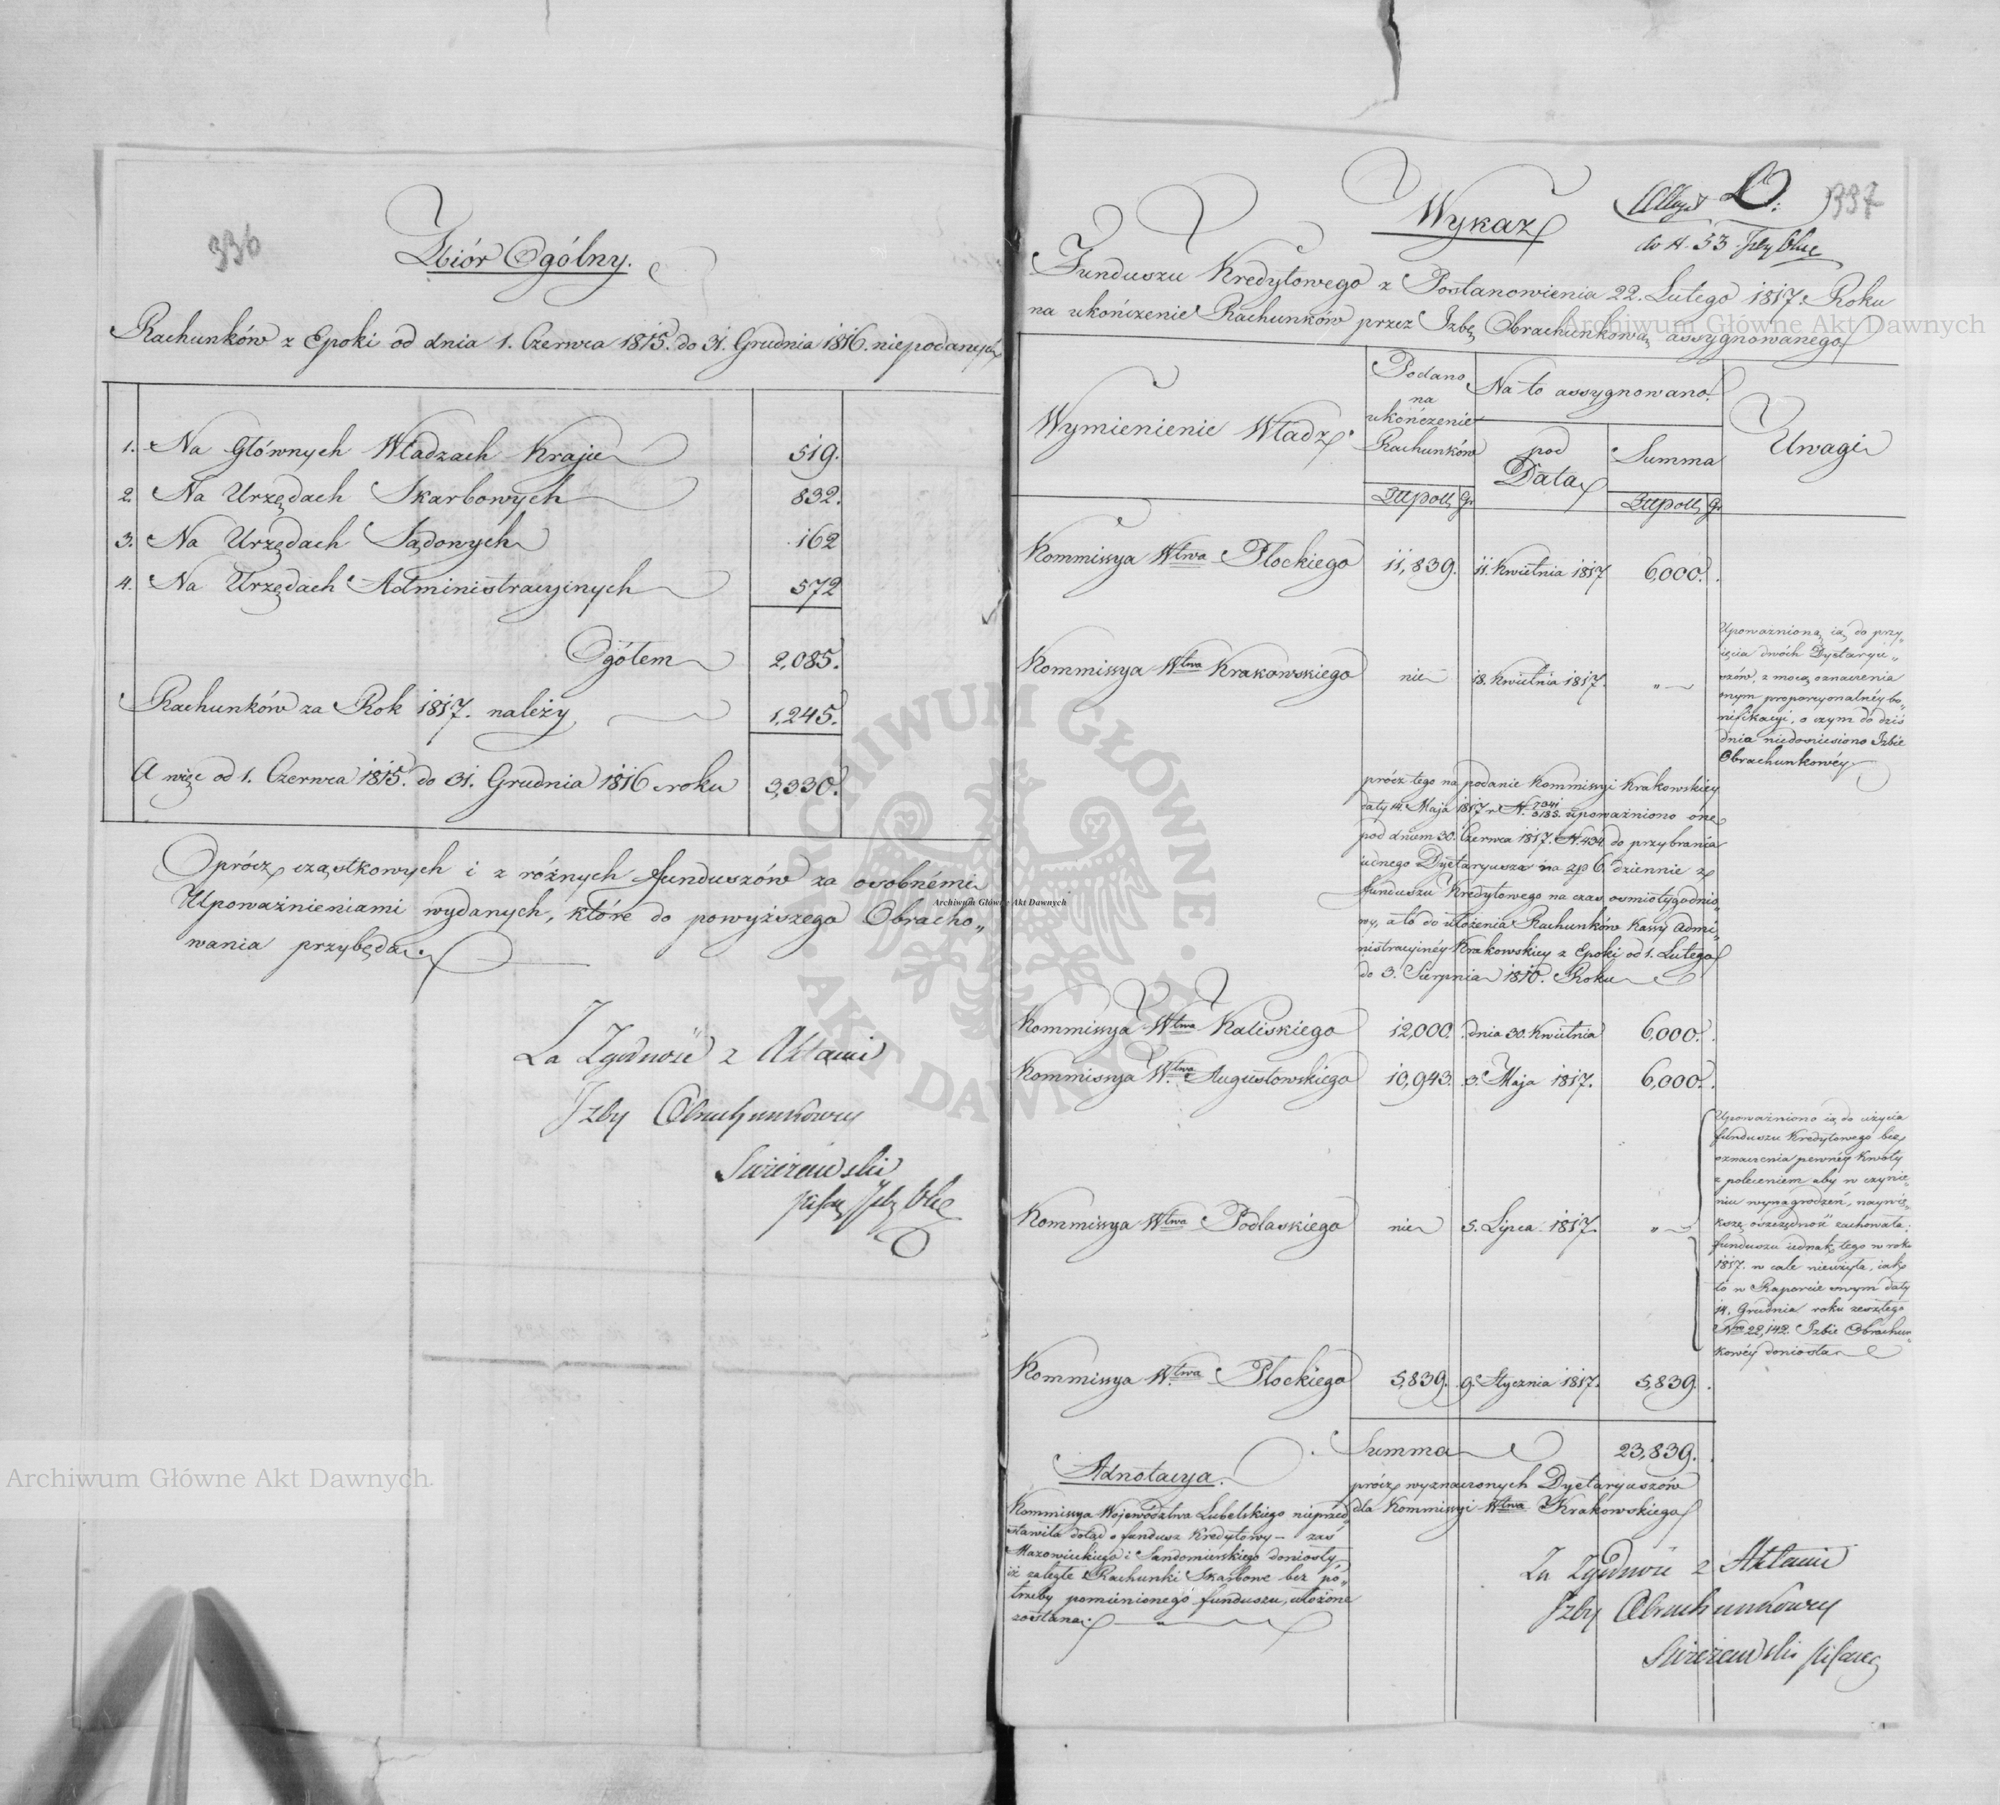 336
Zbiór Ogólny.
Rachunków z Epoki od dnia 1. Czerwca 1815. do 31. Grudnia 1816. niepodanych
1. Na Głównych Władzach Kraju 519.
2. Na Urzędach Skarbowych 832.
3. Na Urzędach Sądowych 162
4. Na Urzędach Administracyinych 572
Ogółem 2,085.
Rachunków za Rok 1817. należy 1,245.
A więc od 1. Czerwca 1815. do 31. Grudnia 1816 roku 3,330.
Oprócz cząstkowych i z różnych funduszów za osobnémi
Upoważnieniami wydanych, które do powyższego Obracho„
wania przybędą.
Za Zgodność z Aktami
Izby Obrachunkowey
Pisarz Izby Obr
337
Wykaz
Allegat D:
do N. 53 Izby Obr
Funduszu Kredytowego z Postanowienia 22. Lutego 1817. Roku
na ukończenie Rachunków przez Izbę Obrachunkową assygnowanego
Wymienienie Władz.
Podano
na
ukończenie
Rachunków
Złłpoll Gr.
Na to assygnowano.
pod
Datą
Summa
Złłpoll Gr.
Uwagi
Kommissya Wtwa Płockiego 11,839. 11. Kwietnia 1817 6,000.
Kommissya Wtwa Krakowskiego nic 18. Kwietnia 1817. „
Upoważnioną ią do przy„
ięcia dwóch Dyetaryu„
szów, z mocą oznaczenia
onym proporcyonalnéy bo„
nifikacyi, o czym do dziś
dnia niedoniesiono Izbie
Obrachunkowéy
prócz tego na podanie Kommissyi Krakowskiey
daty 14. Maja 1817 r. N. 7341/5185. upoważniono onę
pod dniem 30. Czerwca 1817. N. 434 do przybrania
iednego Dyetaryusza na zp 6. dziennie z
funduszu Kredytowego na czas osmiotygodnio„
wy, a to do ułożenia Rachunków Kassy Admi„
nistracyinéy Krakowskiey z Epoki od 1. Lutego
do 3. Sierpnia 1810. Roku
Kommissya Wtwa Kaliskiego 12,000. dnia 30. Kwietnia 6,000.
Kommissya Wtwa Augustowskiego 10,943. 3. Maja 1817. 6,000.
Kommissya Wtwa Podlaskiego nic 5. Lipca 1817. „
Upoważniono ią do użycia
funduszu Kredytowego bez
oznaczenia pewnéy kwoty
z poleceniem aby w czynie„
niu wynagrodzeń, naywię„
kszą oszczędność zachowała.
funduszu iednak tego w roku
1817. w cale nieużyła, iak
to w Raporcie swym daty
14. Grudnia roku zeszłego
Nro 22,142. Izbie Obrachun„
kowéy doniosła
Kommissya Wtwa Płockiego 5,839. 9. Stycznia 1817. 5,839.
Summa 23,839.
prócz wyznaczonych Dyetaryuszów
dla Kommissyi Wtwa Krakowskiego
Adnotacya.
Kommissya Województwa Lubelskiego nieprzed„
stawiła dotąd o fundusz Kredytowy – zaś
Mazowieckiego i Sandomierskiego doniosły,
iż zaległe Rachunki Skarbowe bez po„
trzeby pomienionego funduszu, ułożone
zostaną.
Za Zgodność z Aktami
Izby Obrachunkowey
Pisarz
Archiwum Główne Akt Dawnych
Archiwum Główne Akt Dawnych
Archiwum Główne Akt Dawnych.
ARCHIWUM GŁÓWNE AKT DAWNYCH